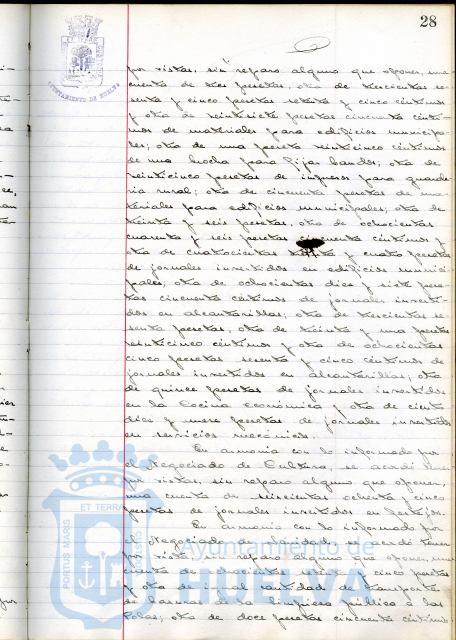 28
AYUNTAMIENTO DE HUELVA
por vistas, sin reparo alguno que oponer, una
cuenta de tres pesetas, otra de trescientas se-
senta y cinco pesetas setenta y cinco céntimos
y otra de veintisiete pesetas cincuenta cénti-
mos de materiales para edificios municipa-
les; otra de una peseta veinticinco céntimos
de una brocha para fijar bandos; otra de
veinticinco pesetas de impresos para guarde-
ria rural; otra de cincuenta pesetas de ma-
teriales para edificios municipales; otra de
treinta y seis pesetas, otra de ochocientas
cuarenta y seis pesetas cincuenta céntimos y
otra de cuatrocientas y cuatro pesetas
de jornales invertidos en edificios munici-
pales; otra de ochocientas diez y siete pese-
tas cincuenta céntimos de jornales inverti-
dos en alcantarillas; otra de trescientas se-
senta pesetas, otra de treinta y una pesetas
veinticinco céntimos y otra de ochocientas
cinco pesetas sesenta y cinco céntimos de
jornales invertidos en alcantarillas; otra
de quince pesetas de jornales invertidos
en la Cocina económica y otra de ciento
diez y nueve pesetas de jornales invertidos
en servicios mecánicos.
En armonía con lo informado por
el Negociado de Cultura, se acordó tener
por vistas, sin reparo alguno que oponer,
una cuenta de seiscientas ochenta y cinco
pesetas de jornales invertidos en festejos.
En armonía con lo informado por
el Negociado de acordó tener
por vistas reparo alguno que oponer, una
cuenta de y cinco pesetas
y otra de igual cantidad de transporte
de basuras de la limpieza pública a las
Colas; otra de doce pesetas cincuenta céntimos
PORTUS MARIS ET TERRAE
Ayuntamiento de
HUELVA